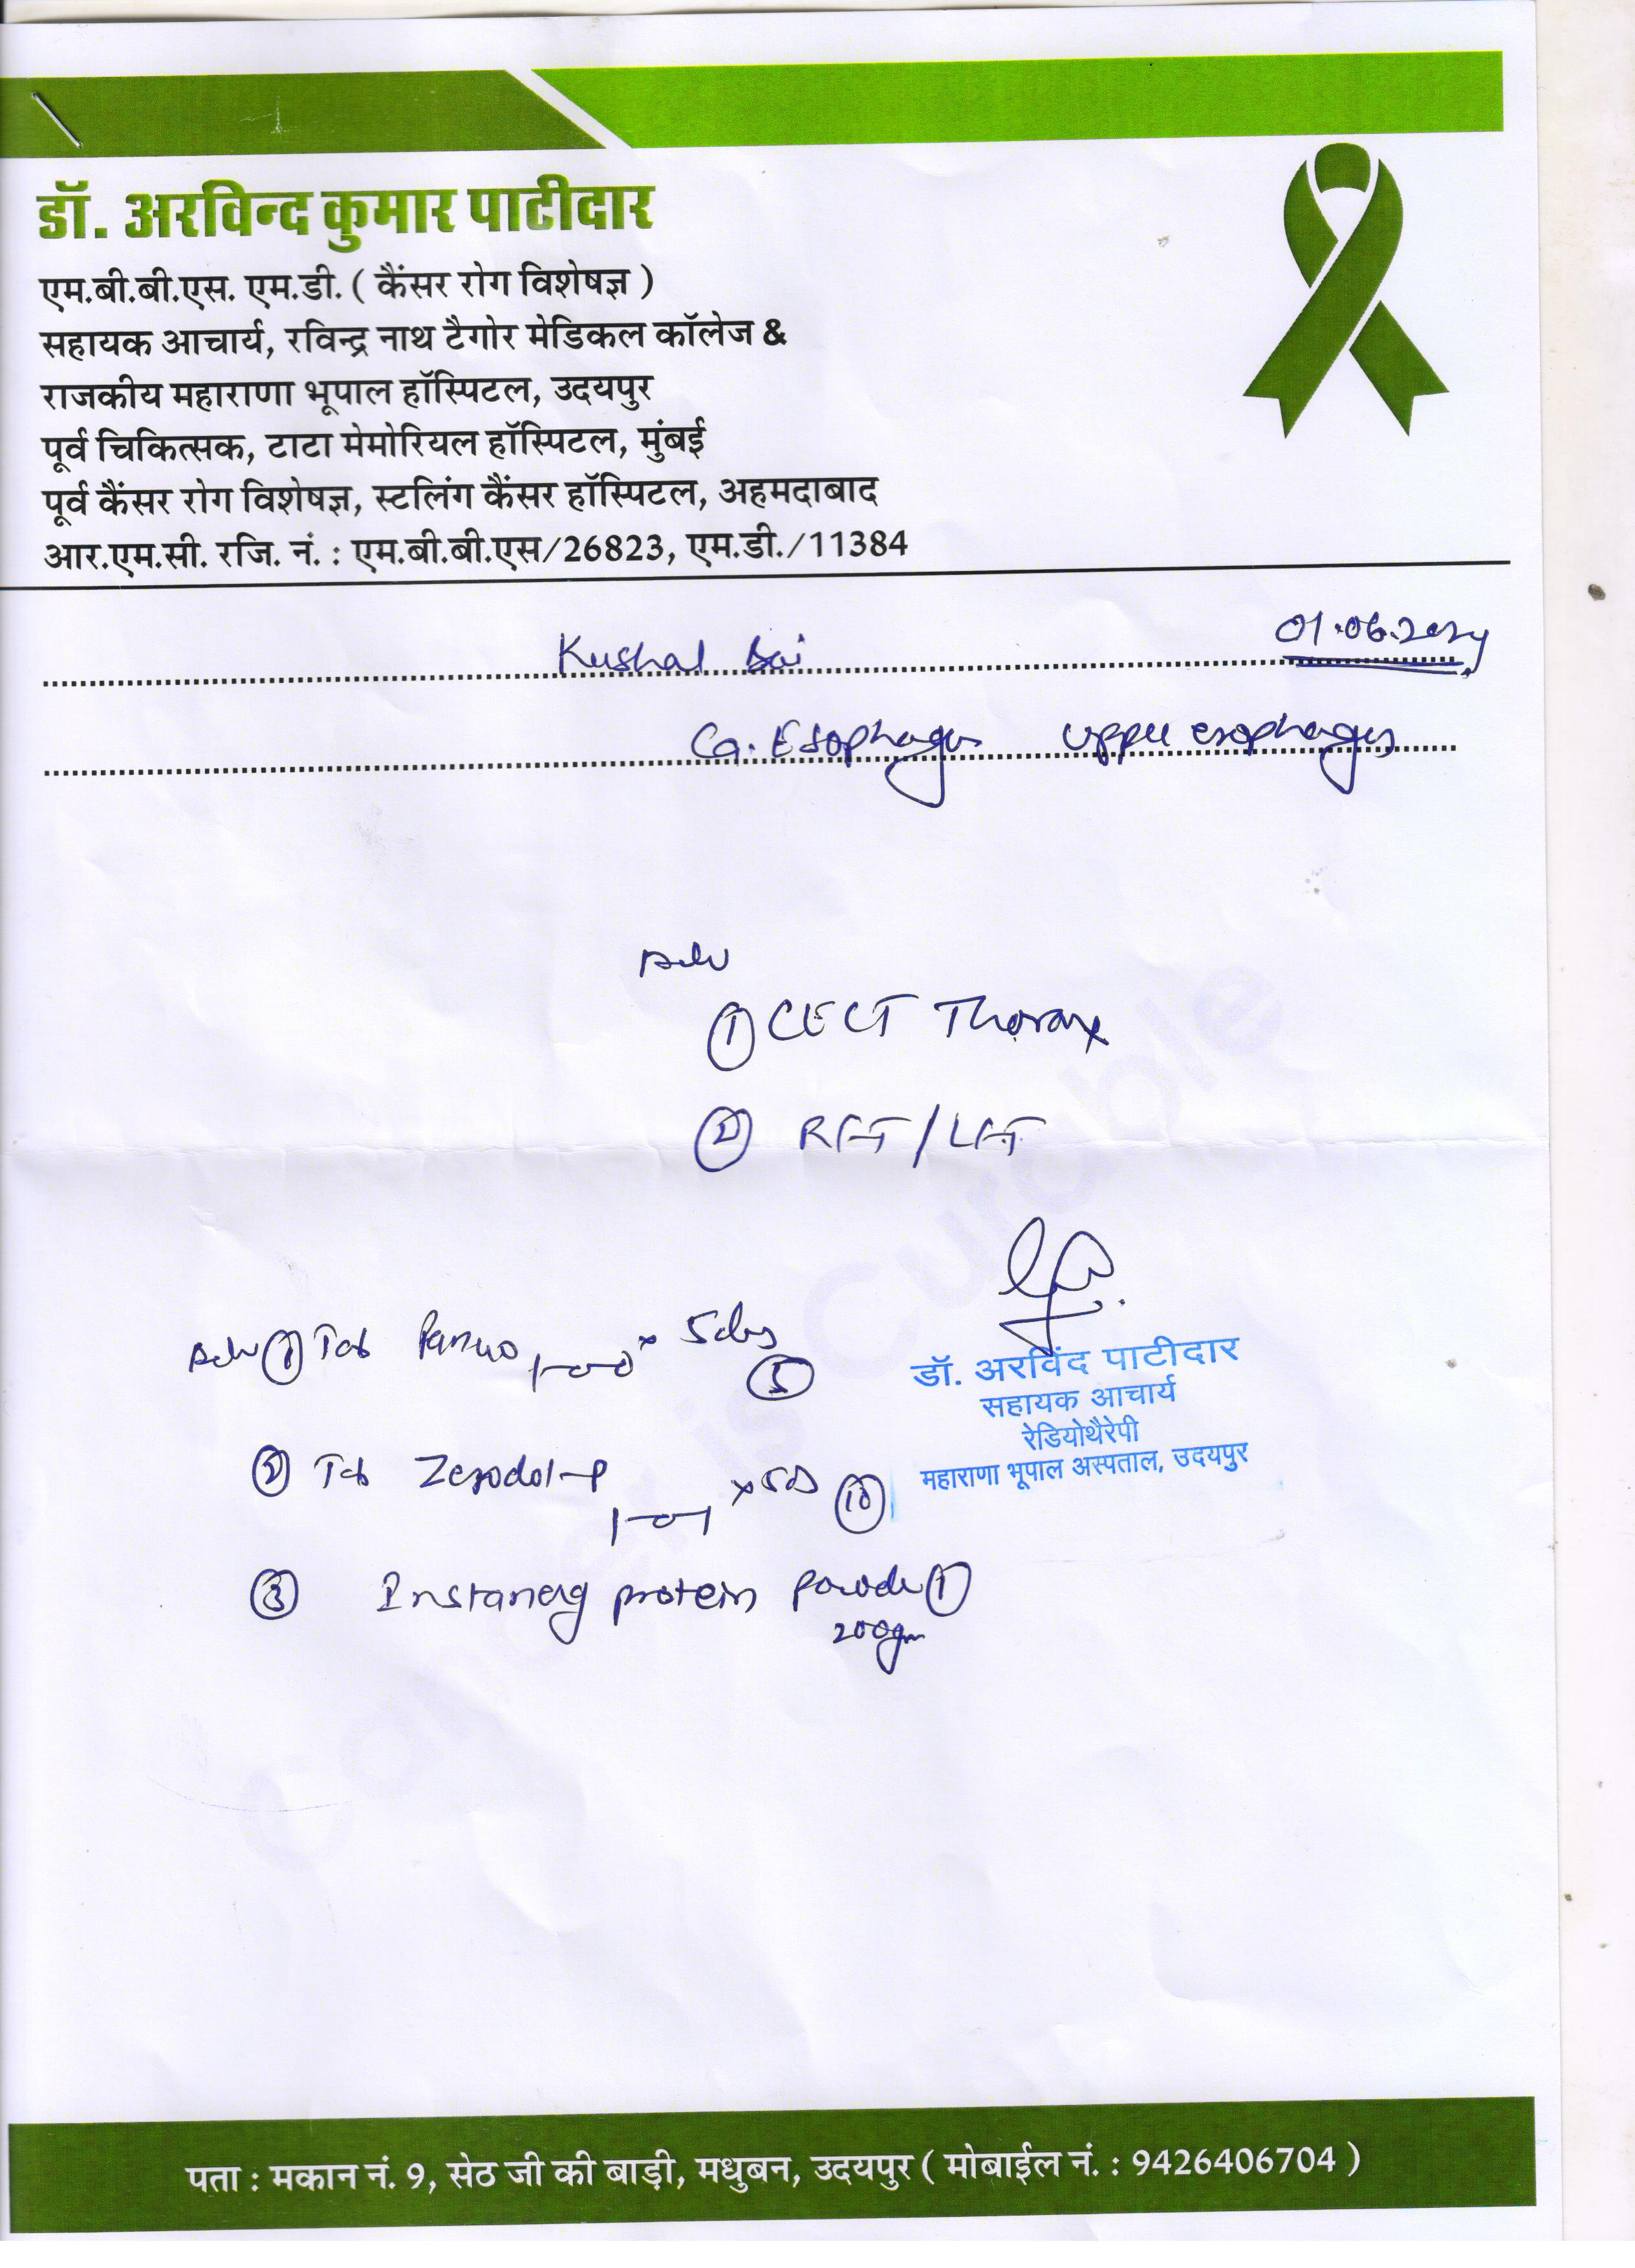 डॉ. अरविन्द कुमार पाटीदार
एम.बी.बी.एस. एम.डी. ( कैंसर रोग विशेषज्ञ )
सहायक आचार्य, रविन्द्र नाथ टैगोर मेडिकल कॉलेज &
राजकीय महाराणा भूपाल हॉस्पिटल, उदयपुर
पूर्व चिकित्सक, टाटा मेमोरियल हॉस्पिटल, मुंबई
पूर्व कैंसर रोग विशेषज्ञ, स्टलिंग कैंसर हॉस्पिटल, अहमदाबाद
आर.एम.सी. रजि. नं. : एम.बी.बी.एस/26823, एम.डी./11384
01.06.2024
Kushal Bai
Ca. Esophagus Upper esophagus
Adv
① CECT Thorax
② RFT/LFT
Adv ① Tab 1-0-0 x 5 days ⑤
डॉ. अरविंद पाटीदार
सहायक आचार्य
रेडियोथैरेपी
महाराणा भूपाल अस्पताल, उदयपुर
② Tab Zerodol-P 1-0-1 x 5d ⑩
③ protein powder ①
200gm
Cancer is Curable
पता : मकान नं. 9, सेठ जी की बाड़ी, मधुबन, उदयपुर ( मोबाईल नं. : 9426406704 )